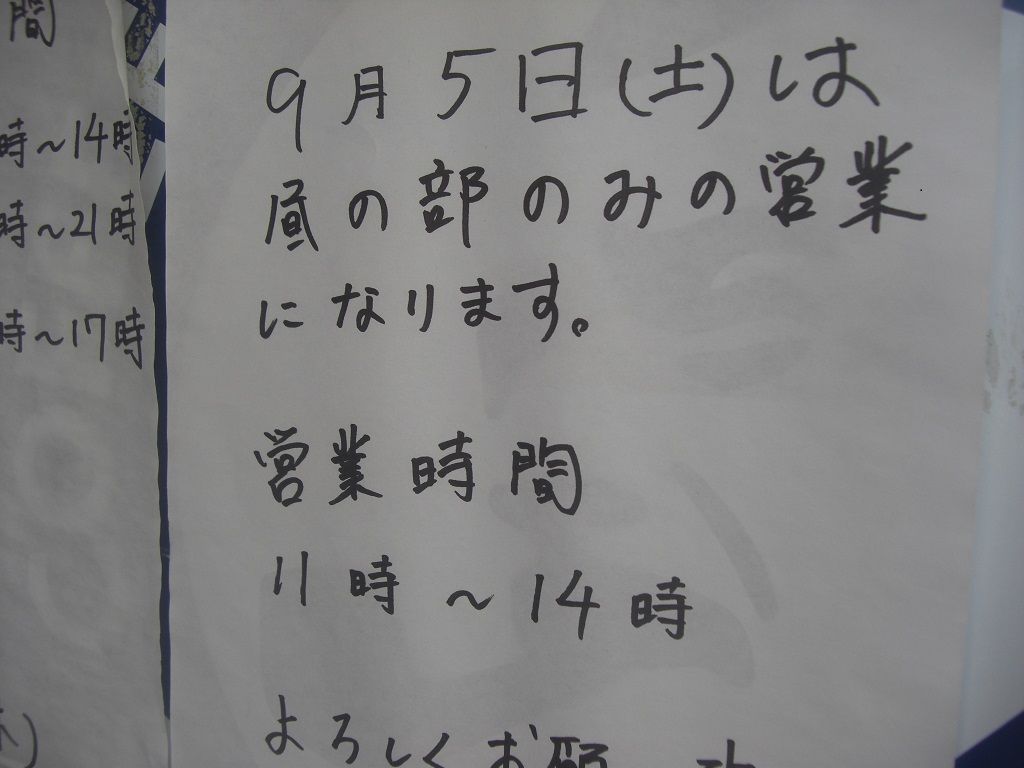 間
時～14時
時～21時
時～17時
9月5日(土)は
昼の部のみの営業
になります。
営業時間
11時～14時
よろしくお願